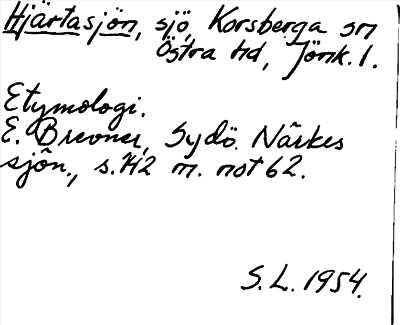 Hjärtasjön, sjö, Korsberga sn
Östra hd, Jönk. l.
Etymologi.
E. Brevner, Sydö. Närkes
sjön., s. 42 m. not 62.
S.L. 1954.